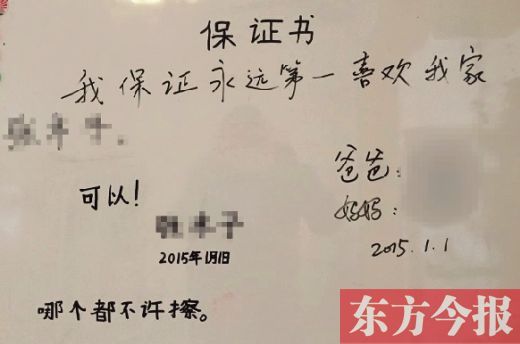 保证书
我保证永远第一喜欢我家
可以!
2015年1月1日
爸爸:
妈妈:
2015.1.1
哪个都不许擦。
东方今报